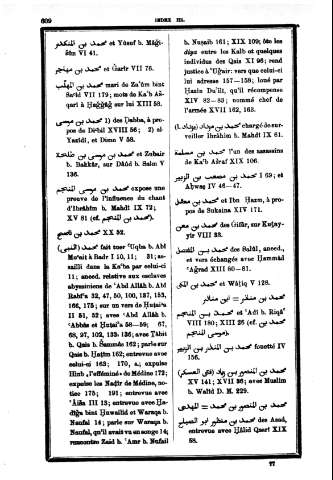 609
INDEX III.
محمد بن المنكدر et Yûsuf b. Mâǵi-
šûn VI 41.
محمد بن مهاجر et Ǵarîr VII 75.
محمد بن المهلب mari de Za'ûm bint
VII 179; mots de Ka'b
sur lui XIII 58.
محمد بن موسى 1) des Ḍabba, à pro-
pos de XVIII 56; 2) al-
Yazîdî, et Dienn V 58.
محمد بن موسى بن طلحة et Zubair
b. Bakkâr, sur Dâûd b. Salm V
136.
محمد بن موسى المنجم expose une
preuve de l'influence du chant
d'Ibrâhîm b. Mahdî IX 72;
XV 81 (cf. محمد المنجم).
محمد بن نجيح XX 52.
محمد (النبي) fait tuer 'Uqba b. Abî
Mu'aiṭ à Badr I 10, 11; 31; as-
sailli dans la Ka'ba par celui-ci
11; anecd. relative aux esclaves
abyssiniens de 'Abd Allâh b. Abî
Rabî'a 32, 47, 50, 100, 137, 153,
166, 175; sur un vers de
II 51, 52; avec 'Abd Allâh b.
'Abbâs et 58—59; 67,
68, 97, 102, 133; 136; avec Ṯâbit
b. Qais b. Šammâs 162; parle sur
Qais b. 162; entrevue avec
celui-ci 163; 170, a.; expulse
Hinb „l'efféminé" de Médine 172;
expulse les Naḍîr de Médine, no-
tice 175; 191; entrevue avec
'Âïša III 13; entrevue avec Ḫa-
dîǵa bint Ḫuwailid et Waraqa b.
Naufal 14; parle sur Waraqa b.
Naufal, qu'il avait vu en songe 14;
rencontre Zaid b. 'Amr b. Nufail
b. Nuṣaib 161; XIX 109; ôte les
entre les Kalb et quelques
individus des Qais XI 96; rend
justice à vers que celui-ci
lui adresse 157—159; loué par
Ḥazîn Du'lî, qu'il récompense
XIV 82—83; nommé chef de
l'armée XVII 162, 163.
محمد بن chargé de sur-
veiller Ibrâhîm b. Mahdî IX 61.
محمد بن مسلمة l'un des assassins
de Ka'b Ašraf XIX 106.
محمد بن مصعب بن الزبير I 69; et
Aḥwaṣ IV 46—47.
محمد بن et Ibn Ḥazm, à pro-
pos de Sukaina XIV 171.
محمد بن معن des Ǵifâr, sur Kuṯay-
yir VIII 33.
محمد بن المفضل des Salûl, anecd.,
et vers échangés avec Ḥammâd
'Aǵrad XIII 80—81.
محمد بن المكي et Wâṯiq V 128.
محمد بن مناذر = ابن مناذر
محمد بن المنجم et 'Adî b. Riqâ'
VIII 180; XIII 25 (cf. محمد بن
موسى المنجم).
محمد بن المنذر بن الزبير fouetté IV
156.
محمد بن المنصور بن زياد (فتى العسكر)
XV 141; XVII 36; avec Muslim
b. Walîd D. M. 229.
محمد بن المنصور = المهدى
محمد بن منظور ابو الصباح des Asad,
entrevue avec Ḫâlid Qasrî XIX
58.
77